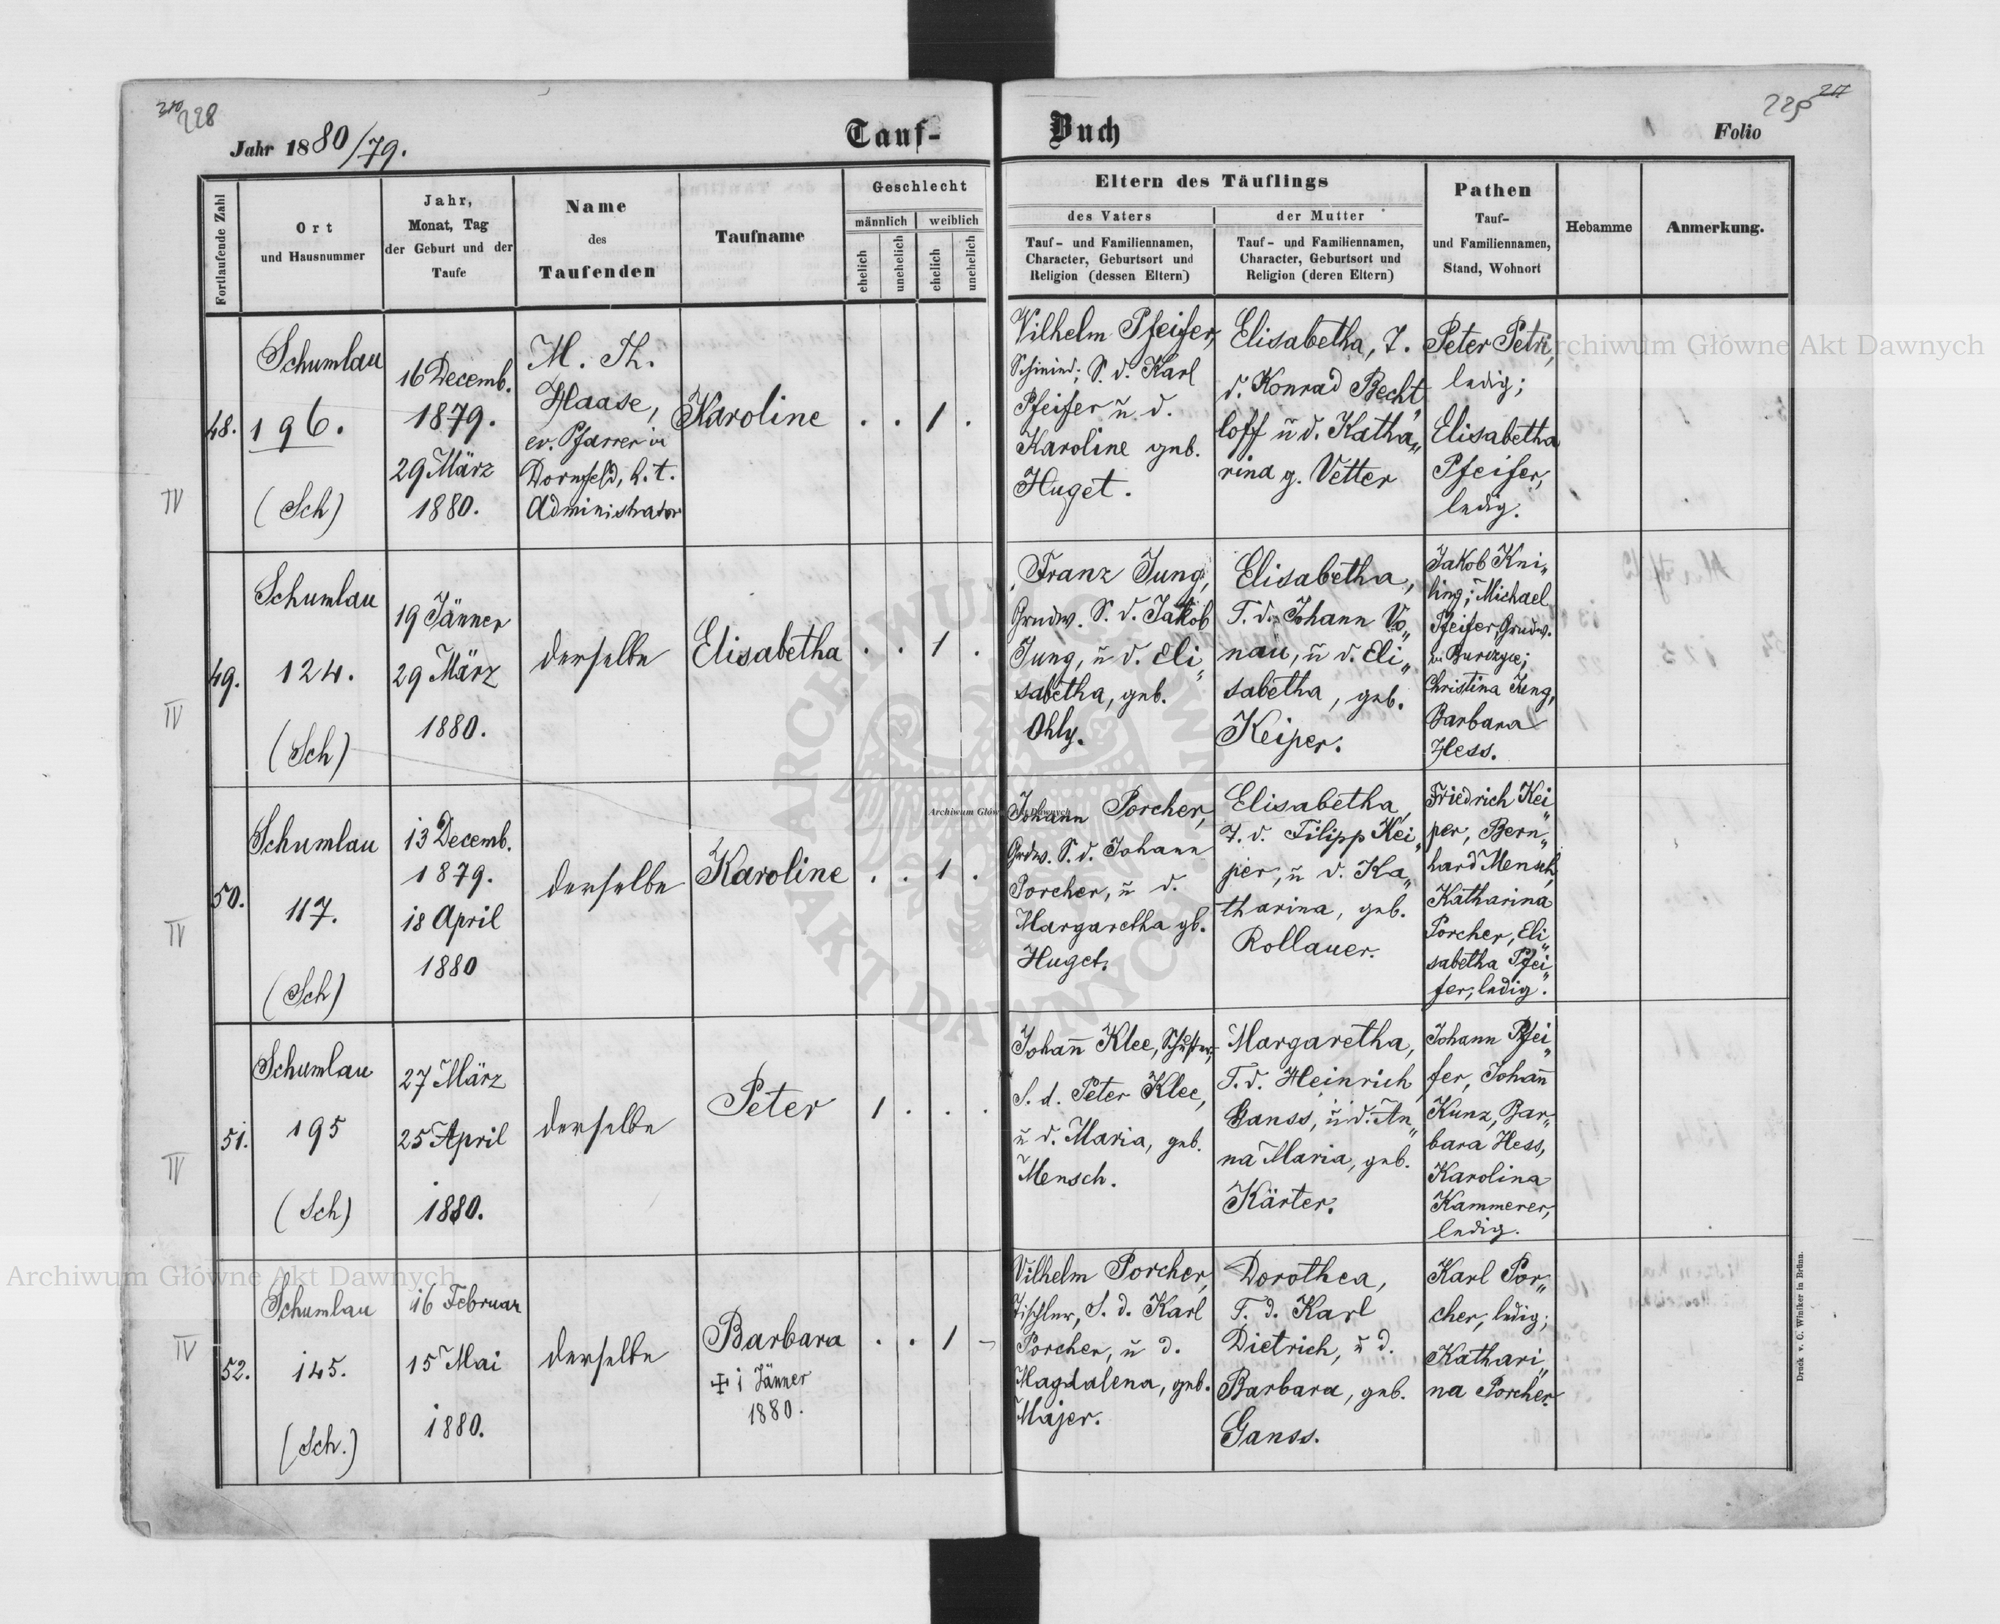 228
229
Jahr 1880/79.
Tauf-
Buch
Folio
Fortlaufende Zahl
Ort
und Hausnummer
Jahr,
Monat, Tag
der Geburt und der
Taufe
Name
des
Taufenden
Taufname
Geschlecht
männlich
weiblich
ehelich
unehelich
ehelich
unehelich
Eltern des Täuflings
des Vaters
Tauf- und Familiennamen,
Character, Geburtsort und
Religion (dessen Eltern)
der Mutter
Tauf- und Familiennamen,
Character, Geburtsort und
Religion (deren Eltern)
Pathen
Tauf-
und Familiennamen,
Stand, Wohnort
Hebamme
Anmerkung.
IV
48.
Schumlau
196.
(Sch)
16 Decemb.
1879.
29 März
1880.
M. Th.
Haase,
ev. Pfarrer in
Dornfeld, h. t.
Administrator
Karoline
. . 1 .
Vilhelm Pfeifer,
Schmied, S. d. Karl
Pfeifer u. d.
Karoline geb.
Huget.
Elisabetha, T.
d. Konrad Becht„
loff u d. Katha„
rina g. Vetter
Peter Petri,
ledig;
Elisabetha
Pfeifer,
ledig.
IV
49.
Schumlau
124.
(Sch)
19 Jänner
29 März
1880.
derselbe
Elisabetha
. . 1 .
Franz Jung,
Grndw. S. d. Jakob
Jung, u d. Eli„
sabetha, geb.
Ohly.
Elisabetha,
T. d. Johann Vo„
nau, u d. Eli„
sabetha, geb.
Keiper.
Jakob Kni„
ling; Michael
Pfeifer, Grndw.
in Burczyce;
Christina Jung,
Barbara
Hess.
IV
50.
Schumlau
117.
(Sch)
13 Decemb.
1879.
18 April
1880
derselbe
Karoline
. . 1 .
Johann Porcher,
Grdw. S. d. Johann
Porcher, u d.
Margaretha gb.
Huget.
Elisabetha,
T. d. Filipp Kei„
per, u d. Ka„
tharina, geb.
Rollauer.
Friedrich Kei„
per, Bern„
hard Mensch,
Katharina
Porcher, Eli„
sabetha Pfei„
fer, ledig.
IV
51.
Schumlau
195
(Sch)
27 März
25 April
1880.
derselbe
Peter
1 . . .
Johañ Klee, Schuster,
S. d. Peter Klee,
u d. Maria, geb.
Mensch.
Margaretha,
T. d. Heinrich
Ganss, u d. An„
na Maria, geb.
Kärter.
Johann Pfei„
fer, Johañ
Kunz, Bar„
bara Hess,
Karolina
Kammerer,
ledig.
IV
52.
Schumlau
145.
(Sch.)
16 Februar
15 Mai
1880.
derselbe
Barbara
+ 1 Jänner
1880.
. . 1 –
Vilhelm Porcher,
Tischler, S. d. Karl
Porcher, u d.
Magdalena, geb.
Majer.
Dorothea,
T. d. Karl
Dietrich, u d.
Barbara, geb.
Ganss.
Karl Por„
cher, ledig;
Kathari„
na Porcher.
Druck v. C. Winiker in Brünn.
Archiwum Główne Akt Dawnych
Archiwum Główne Akt Dawnych
Archiwum Główne Akt Dawnych
ARCHIWUM GŁÓWNE
AKT DAWNYCH